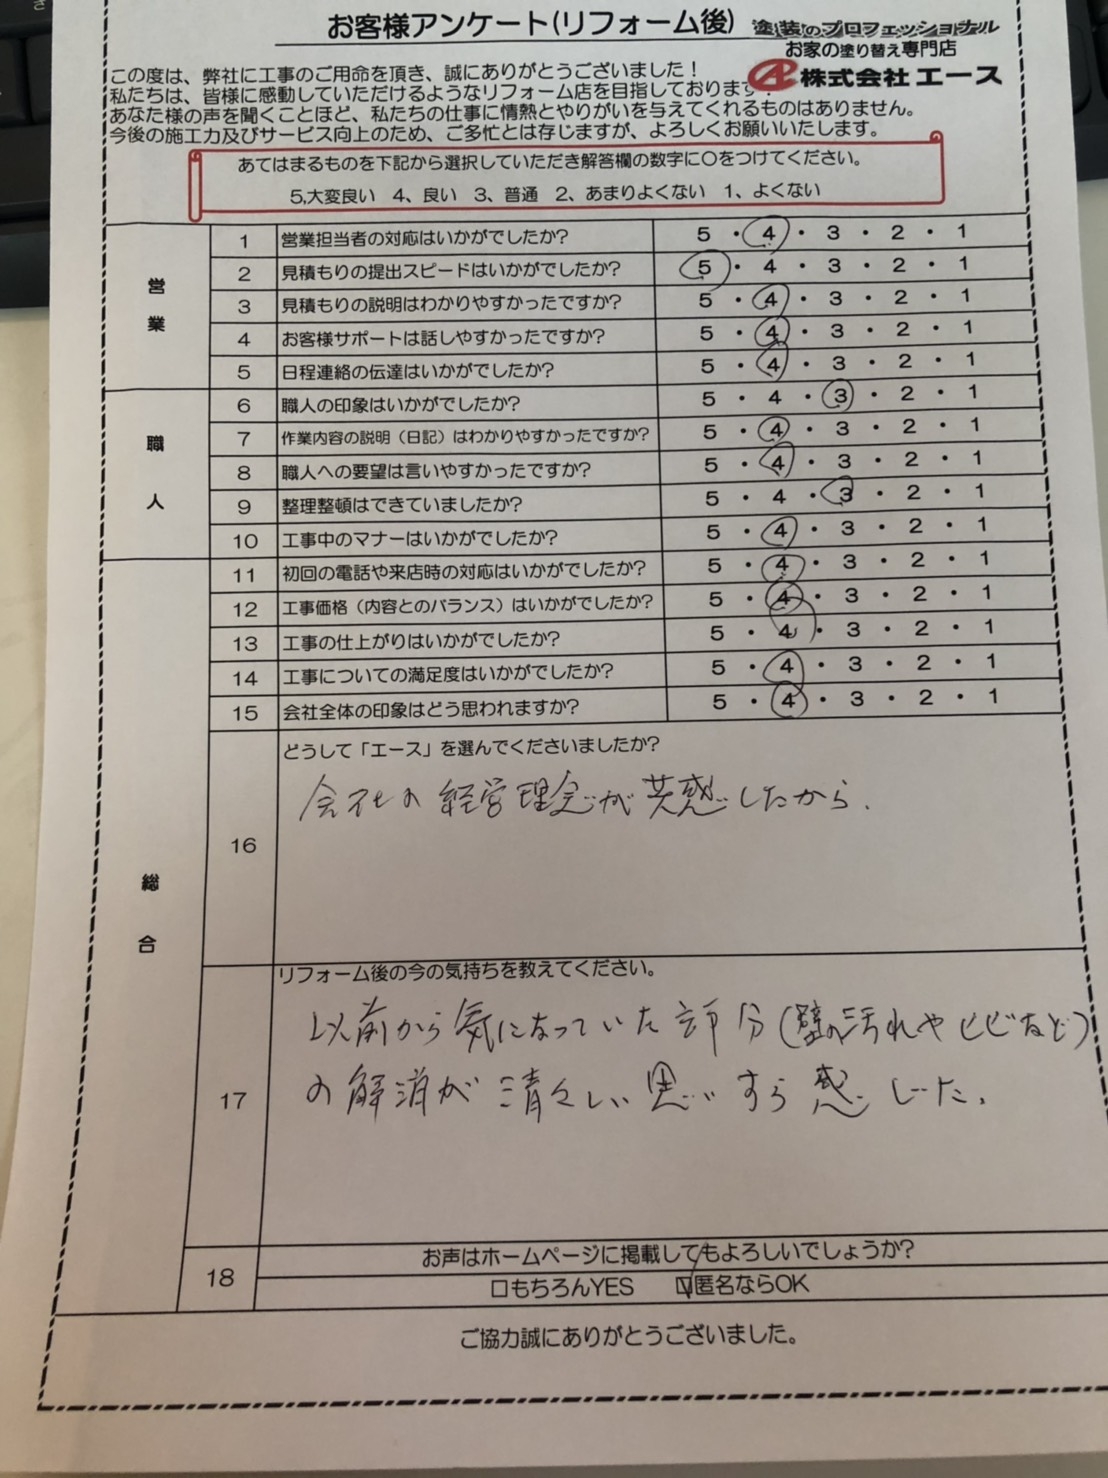 お客様アンケート(リフォーム後)
塗装のプロフェッショナル
お家の塗り替え専門店
株式会社エース
この度は、弊社に工事のご用命を頂き、誠にありがとうございました！
私たちは、皆様に感動していただけるようなリフォーム店を目指しております！
あなた様の声を聞くことほど、私たちの仕事に情熱とやりがいを与えてくれるものはありません。
今後の施工力及びサービス向上のため、ご多忙とは存じますが、よろしくお願いいたします。
あてはまるものを下記から選択していただき解答欄の数字に〇をつけてください。
5,大変良い 4、良い 3、普通 2、あまりよくない 1、よくない
営業
1 営業担当者の対応はいかがでしたか？ 5・4・3・2・1
2 見積もりの提出スピードはいかがでしたか？ 5・4・3・2・1
3 見積もりの説明はわかりやすかったですか？ 5・4・3・2・1
4 お客様サポートは話しやすかったですか？ 5・4・3・2・1
5 日程連絡の伝達はいかがでしたか？ 5・4・3・2・1
職人
6 職人の印象はいかがでしたか？ 5・4・3・2・1
7 作業内容の説明（日記）はわかりやすかったですか？ 5・4・3・2・1
8 職人への要望は言いやすかったですか？ 5・4・3・2・1
9 整理整頓はできていましたか？ 5・4・3・2・1
10 工事中のマナーはいかがでしたか？ 5・4・3・2・1
総合
11 初回の電話や来店時の対応はいかがでしたか？ 5・4・3・2・1
12 工事価格（内容とのバランス）はいかがでしたか？ 5・4・3・2・1
13 工事の仕上がりはいかがでしたか？ 5・4・3・2・1
14 工事についての満足度はいかがでしたか？ 5・4・3・2・1
15 会社全体の印象はどう思われますか？ 5・4・3・2・1
16 どうして「エース」を選んでくださいましたか？
会社の経営理念が共感したから.
17 リフォーム後の今の気持ちを教えてください。
以前から気になっていた部分(壁の汚れやヒビなど)
の解消が清々しい思いすら感じた。
18 お声はホームページに掲載してもよろしいでしょうか？
□もちろんYES ☑匿名ならOK
ご協力誠にありがとうございました。